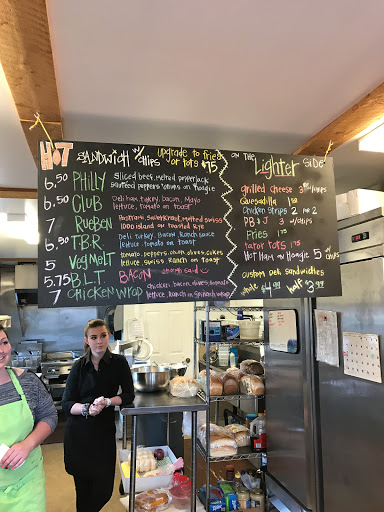 HOT SANDWICH W/ CHIPS
upgrade to fries or tots $.75
6.50 PHILLY Sliced beef, melted pepperjack
sauteed peppers onions on hoagie
6.50 CLUB Deli ham, turkey, bacon, mayo
lettuce, tomato on toast
7 RueBEN Pastrami, sauerkraut, melted swiss
1000 island on toasted rye
6.50 T.B.R. Deli turkey, Bacon, Ranch sauce
lettuce tomato on toast
5 Veg MeLT tomato, peppers, onion, olives, cukes
lettuce, swiss, Ranch on Toast
5.75 B.L.T. BACON enough said
7 CHICKEN WRAP chicken, bacon, olives, tomato
lettuce, Ranch in spinach wrap
ON THE Lighter SIDE
grilled cheese 3 w/chips
Quesadilla
Chicken Strips
PB & J 3 w/chips
Fries
tator tots 1.75
Hot Ham on Hoagie 5 w/ chips
custom Deli Sandwiches
whole $4.99 half $3.99